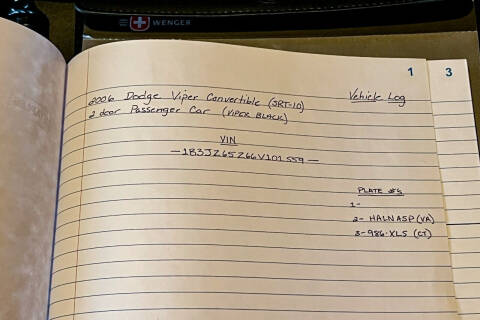 WENGER
1 3
2006 Dodge Viper Convertible (SRT-10) Vehicle Log
2 door Passenger Car (VIPER BLACK)
VIN
—1B3JZ65Z66V101559—
PLATE #s
1-
2- HALNASP (VA)
3-986·XLS (CT)